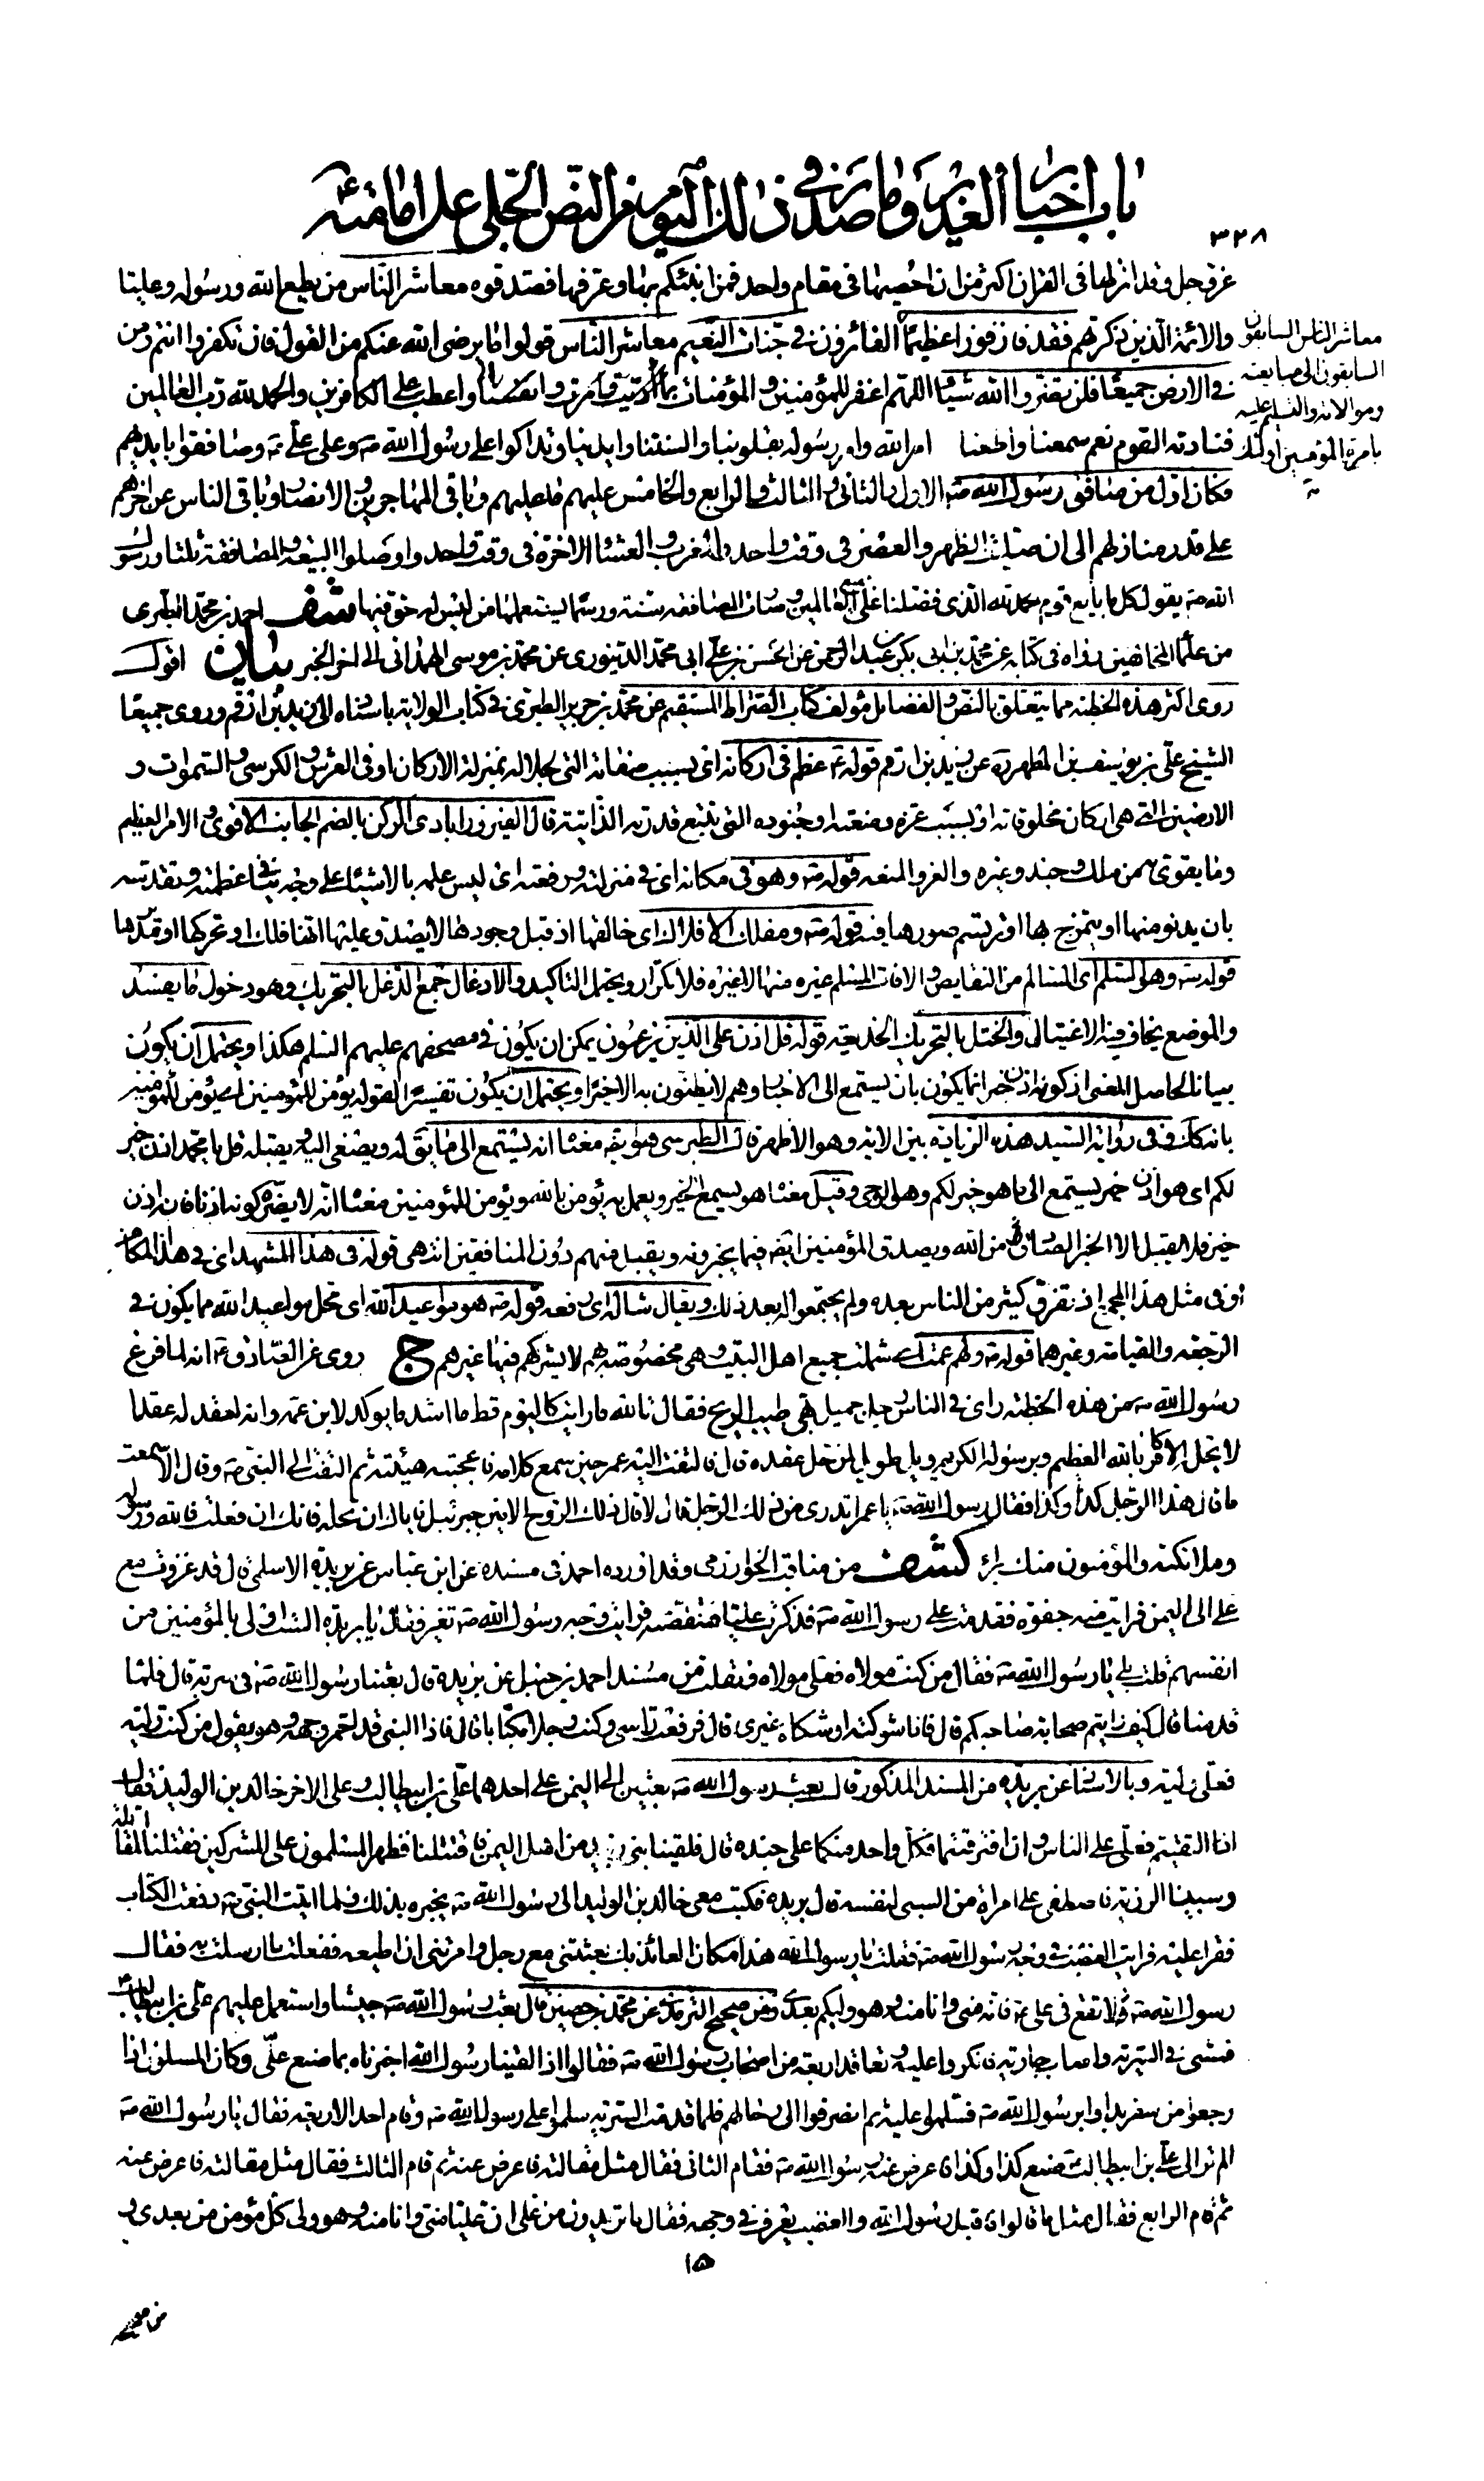 باب اخبار الغدير وما صدر في ذلك اليوم من النص الجلي على امامته
٣٢٨
عز وجل وقد انزلها فى القران اكثر من ان احصيها فى مقام واحد فمن انبئكم بها وعرفها فصدقوه معاشر الناس من يطع الله ورسوله وعليا
والائمة الذين ذكرتهم فقد فاز فوزا عظيما الفائزون في جنات النعيم معاشر الناس قولوا ما يرضى الله عنكم من القول فان تكفروا انتم ومن
معاشر الناس السابقون
السابقون الى مبايعته
وموالاته والتسليم عليه
بامرة المؤمنين اولئك
في الارض جميعا فلن تضروا الله شيئا اللهم اغفر للمؤمنين والمؤمنات بما اديت وامرت واعطب على الكافرين والحمد لله رب العالمين
فنادته القوم نعم سمعنا واطعنا امر الله وامر رسوله بقلوبنا والسنتنا وايدينا وتداكوا على رسول الله ص وعلى علي ع وصافقوا بايديهم
فكان اول من صافق رسول الله ص الاول والثانى والثالث والرابع والخامس عليهم ما عليهم وباقى المهاجرين والانصار وباقى الناس عن اخرهم
على قدر منازلهم الى ان صليت الظهر والعصر فى وقت واحد والمغرب والعشاء الاخرة فى وقت واحد واوصلوا البيعة والمصافقة ثلثا ورسول
الله ص يقول كلما بايع قوم الحمد لله الذى فضلنا على جميع العالمين وصارت المصافقة سنة ورسما يستعملها من ليس له حق فيها شف احمد بن محمد الطبرى
من علماء المخالفين رواه فى كتابه عن محمد بن ابى بكر بن عبد الرحمن عن الحسن بن على ابى محمد الدينورى عن محمد بن موسى الهمدانى الى اخر الخبر بيان اقول
روى اكثر هذه الخطبة مما يتعلق بالنص والفضايل مؤلف كتاب الصراط المستقيم عن محمد بن جرير الطبرى في كتاب الولاية باسناده الى زيد بن ارقم وروى جميعها
الشيخ على بن يوسف بن المطهر ره عن زيد بن ارقم قوله ع عظم فى اركانه اى بسبب صفاته التى لجلاله بمنزلة الاركان او فى العرش والكرسى والسموات و
الارضين التى هى اركان مخلوقاته او بسبب عزه ومنعته او جنوده التى تتبع قدرته الذاتية قال الفيروزابادى الركن بالضم الجانب الاقوى والامر العظيم
وما يقوى به من ملك وجند وغيره والعز والمنعة قوله ص وهو فى مكانه اى في منزلته ورفعته اى ليس علمه بالاشياء على وجه ينافى عظمته وتقدسه
بان يدنو منها او يتمزج بها او يرتسم صورها فيه قوله ص ومفلك الافلاك اى خالقها اذ قبل وجودها لا يصدق عليها انها فلك او محركها او مديرها
قوله ص وهو السلم اى السالم من النقايص والافات المسلم غيره منها لا غيره فلا تكرار ويحتمل التاكيد والادغال جمع الدغل بالتحريك وهو دخول ما يفسد
والموضع يخاف فيه الاغتيال والختل بالتحريك الخديعة قوله قل اذن على الذين يزعمون يمكن ان يكون في مصحفهم عليهم السلم هكذا ويحتمل ان يكون
بيانا لحاصل المعنى اذ كونه اذن خير انما يكون بان يستمع الى الاخيار وهم لا يظنون به الا خيرا ويحتمل ان يكون تفسيرا لقوله يؤمن للمؤمنين اى يؤمن للمؤمنين
بانه كل وفى رواية السيد هذه الزيادة بين الاية وهو الاظهر قال الطبرسى معناه انه يستمع الى ما يق له ويصغى اليه ويقبله قل يا محمد اذن خير
لكم اى هو اذن خير يستمع الى ما هو خير لكم وهو الوحى وقيل معناه هو يسمع الخير ويعمل به يؤمن بالله ويؤمن للمؤمنين معناه انه لا يضره كونه اذنا فانه اذن
خير فلا يقبل الا الخبر الصادق من الله ويصدق المؤمنين ايضا فيما يخبرونه ويقبل منهم دون المنافقين انتهى قوله فى هذا المشهد اى في هذا المكان
او فى مثل هذا المجمع اذ تفرق كثير من الناس بعده ولم يجتمعوا له بعد ذلك ويقال شاله اى رفعه قوله ص هو مواعيد الله اى محل مواعيد الله مما يكون في
الرجعة والقيامة وغيرهما قوله ص ولهم عمت اى شملت جميع اهل البيت وهى مخصوصة بهم لا يشركهم فيها غيرهم ج روى عن الصادق ع انه لما فرغ
رسول الله ص من هذه الخطبة راى في الناس رجل جميل بهى طيب الريح فقال تالله ما رايت كاليوم قط ما اشد ما يؤكد لابن عمه وانه لعقد له عقدا
لا يحله الا كافر بالله العظيم وبرسوله الكريم ويل طويل لمن حل عقده قال فالتفت اليه عمر حين سمع كلامه فاعجبته هيئته ثم التفت الى النبى ص وقال الا سمعت
ما قال هذا الرجل كذا وكذا فقال رسول الله ص يا عمر اتدرى من ذلك الرجل قال لا قال ذلك الروح الامين جبرئيل فاياك ان تحله فانك ان فعلت فالله ورسوله
وملائكته والمؤمنون منك براء كشف من مناقب الخوارزمى وقد اورده احمد فى مسنده عن ابن عباس عن بريدة الاسلمى قال قد غزوت مع
على الى اليمن فرايت منه جفوة فقدمت على رسول الله ص فذكرت عليا فتنقصته فرايت وجه رسول الله ص تغير فقال يا بريدة الست اولى بالمؤمنين من
انفسهم قلت بلى يا رسول الله ص فقال من كنت مولاه فعلى مولاه ونقلت من مسند احمد بن حنبل عن بريدة قال بعثنا رسول الله ص فى سرية قال فلما
قدمنا قال كيف رايتم صحابة صاحبكم قال فاما شكوته او شكاه غيرى قال فرفعت راسى وكنت رجلا مكبابا قال فاذا النبى قد احمر وجهه وهو يقول من كنت وليه
فعلى وليه وبالاسناد عن بريدة من المسند المذكور قال بعث رسول الله ص بعثين الى اليمن على احدهما على بن ابيطالب وعلى الاخر خالد بن الوليد فقال
اذا التقيتم فعلى على الناس وان افترقتما فكل واحد منكما على جنده قال فلقينا بنى زبيد من اهل اليمن فاقتتلنا فظهر المسلمون على المشركين فقتلنا المقاتلة
وسبينا الذرية فاصطفى على امراة من السبى لنفسه قال بريدة فكتب معى خالد بن الوليد الى رسول الله ص يخبره بذلك فلما اتيت النبى ص دفعت الكتاب
فقرا عليه فرايت الغضب في وجه رسول الله ص فقلت يا رسول الله هذا مكان العائذ بك بعثتنى مع رجل وامرتنى ان اطيعه ففعلت ما ارسلت به فقال
رسول الله ص لا تقع فى على ع فانه منى وانا منه وهو وليكم بعدى ومن صحيح الترمذى عن محمد بن حصين قال بعث رسول الله ص جيشا واستعمل عليهم على بن ابيطالب
فمشى في السرية واصاب جارية فانكروا عليه وتعاقد اربعة من اصحاب رسول الله ص فقالوا اذا لقينا رسول الله اخبرناه بما صنع على وكان المسلمون اذا
رجعوا من سفر بداوا برسول الله ص فسلموا عليه ثم انصرفوا الى رحالهم فلما قدمت السرية سلموا على رسول الله ص وقام احد الاربعة فقال يا رسول الله ص
الم تر الى على بن ابيطالب صنع كذا وكذا فاعرض عنه رسول الله ص فقام الثانى فقال مثل مقالته فاعرض عنه ثم قام الثالث فقال مثل مقالته فاعرض عنه
ثم قام الرابع فقال مثل ما قالوا فاقبل رسول الله والغضب يعرف في وجهه فقال ما تريدون من على ان عليا منى وانا منه وهو ولى كل مؤمن من بعدى و
١٥